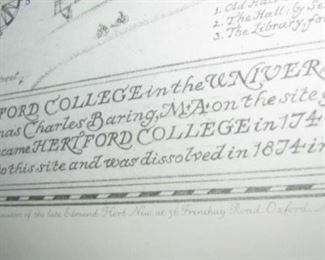 1. Old Hall
2. The Hall: by Se
3. The Library, for
street
FORD COLLEGE in the UNIVER
mas Charles Baring, M·A· on the site
came HERTFORD COLLEGE in 174
to this site and was dissolved in 1874 in
of the late Edmund Hort New at 36 Frenchay Road, Oxford